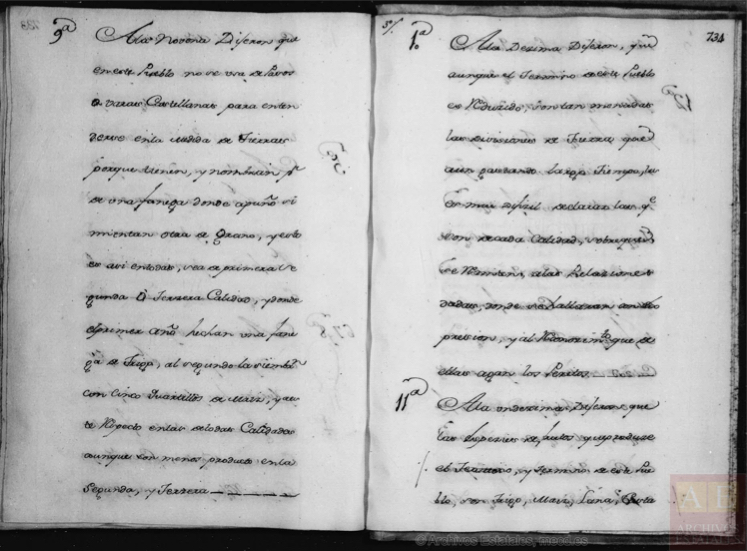 9ª
Ala Novena Dijeron que
en este Pueblo no se usa de Pasos
o varas Castellanas para enten
derse enla medida de Tierras
porque tienen, y nombran pr
de una fanega donde a puño si
mientan otra de Grano, y esto
es asi entodas, sea de primera Se
gunda o Terzera Calidad, y donde
el primer año hechan una fane
ga de Trigo, al segundo la sientan
con Cinco Quartillos de Maiz, y a es
te Respecto enlas de todas Calidades
aunque son menos producto enla
Segunda, y Terzera
57.
734
10ª
Ala Dezima Dijeron, que
aunque el Termino de este Pueblo
es Reduzido, son tan menudas
las divisiones de Tierra, que
aun gastando largo Tiempo, les
es mui dificil declarar las qe
son de cada Calidad, sobre que
se Remiten, alas Relaziones
dadas, donde se hallaran con
presion, y al Reconozimto que de
ellas agan los Peritos
11ª
Ala ondezima Dijeron que
las espezies de frutos que produze
el Terreno, y Termino de este Pue
blo, son Trigo, Maiz, Lana,
© Archivos Estatales, mecd.es
AE
ARCHIVOS
ESTATALES